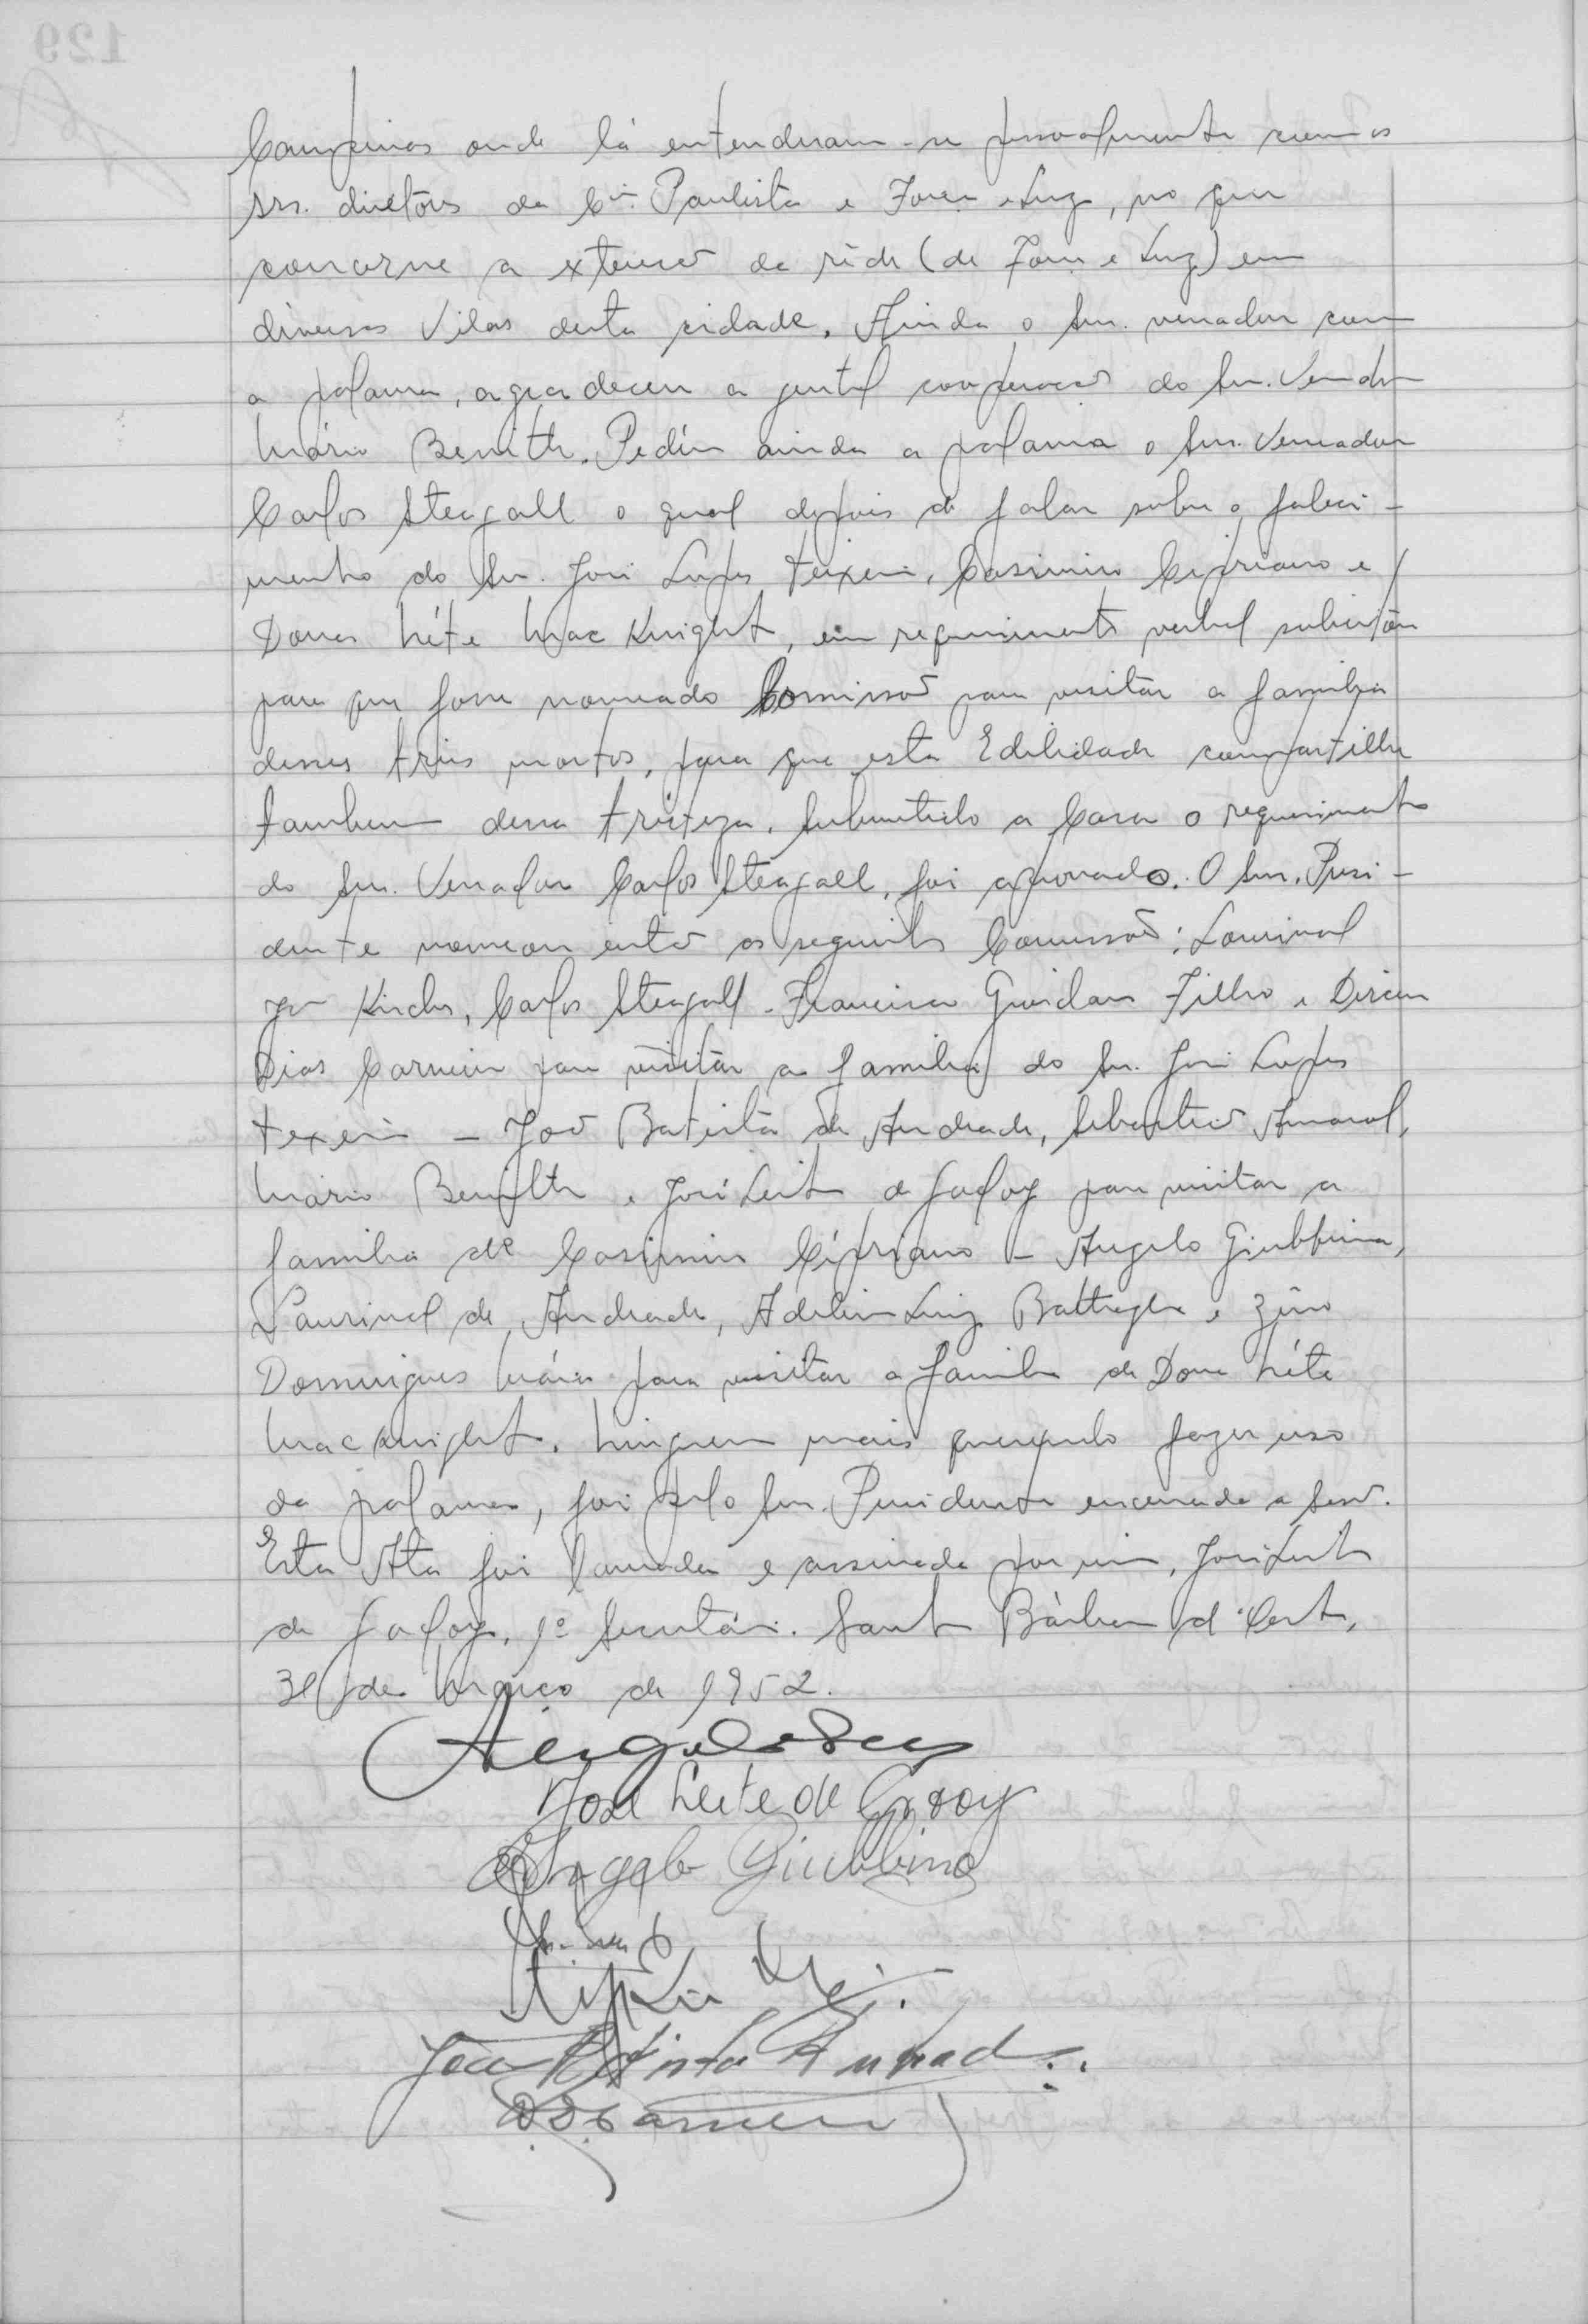 Campinas onde lá entenderam-se pessoalmente com os
srs. diretôres da Cia. Paulista e Força e Luz, no que
concerne a extensão da rêde (de Força e Luz) em
diversas Vilas desta cidade. Ainda o Snr. vereador com
a palavra, agradeceu a gentil cooperação do Snr. Vereador
Mário Benith. Pediu ainda a palavra o Snr. Vereador
Carlos Steagall o qual depois de falar sobre o faleci-
mento do Snr. José Lopes Teixeira, Casimiro Cipriano e
Dona Néte Mac Knight, em requerimento verbal
para que fosse nomeado Comissão para visitar a familia
desses três mortos, para que esta Edilidade compartilhe
tambem dessa tristeza. Submetido a Casa o requerimento
do Snr. Vereador Carlos Steagall, foi aprovado. O Snr. Presi-
dente nomeou então as seguintes Comissões: Lourival
Kirches, Carlos Steagall - Francisco Filho e Dirceu
Dias Carneiro para visitar a familia do Snr. José Lopes
Texeira - João Batista de Andrade, Sebastião Amaral,
Mário Benith e José Leite de Godoy para visitar a
familia de Casimiro Cipriano - Angelo Giubbina,
Laurival de Andrade, Adelino Luiz Battagle e Zino
Domingues Mária para visitar a familia de Dona Néte
Mac Knight. Ninguem mais querendo fazer uso
da palavra, foi pelo Snr. Presidente encerrada a sessão.
Esta Ata foi lavrada e assinada por mim, José Leite
de Godoy, 1º Secretário. Santa Bárbara d'Oeste,
31 de Março de 1952.
José Leite de Godoy
Angelo Giubbina
João Batista Andrade
D. D. Carneiro
129